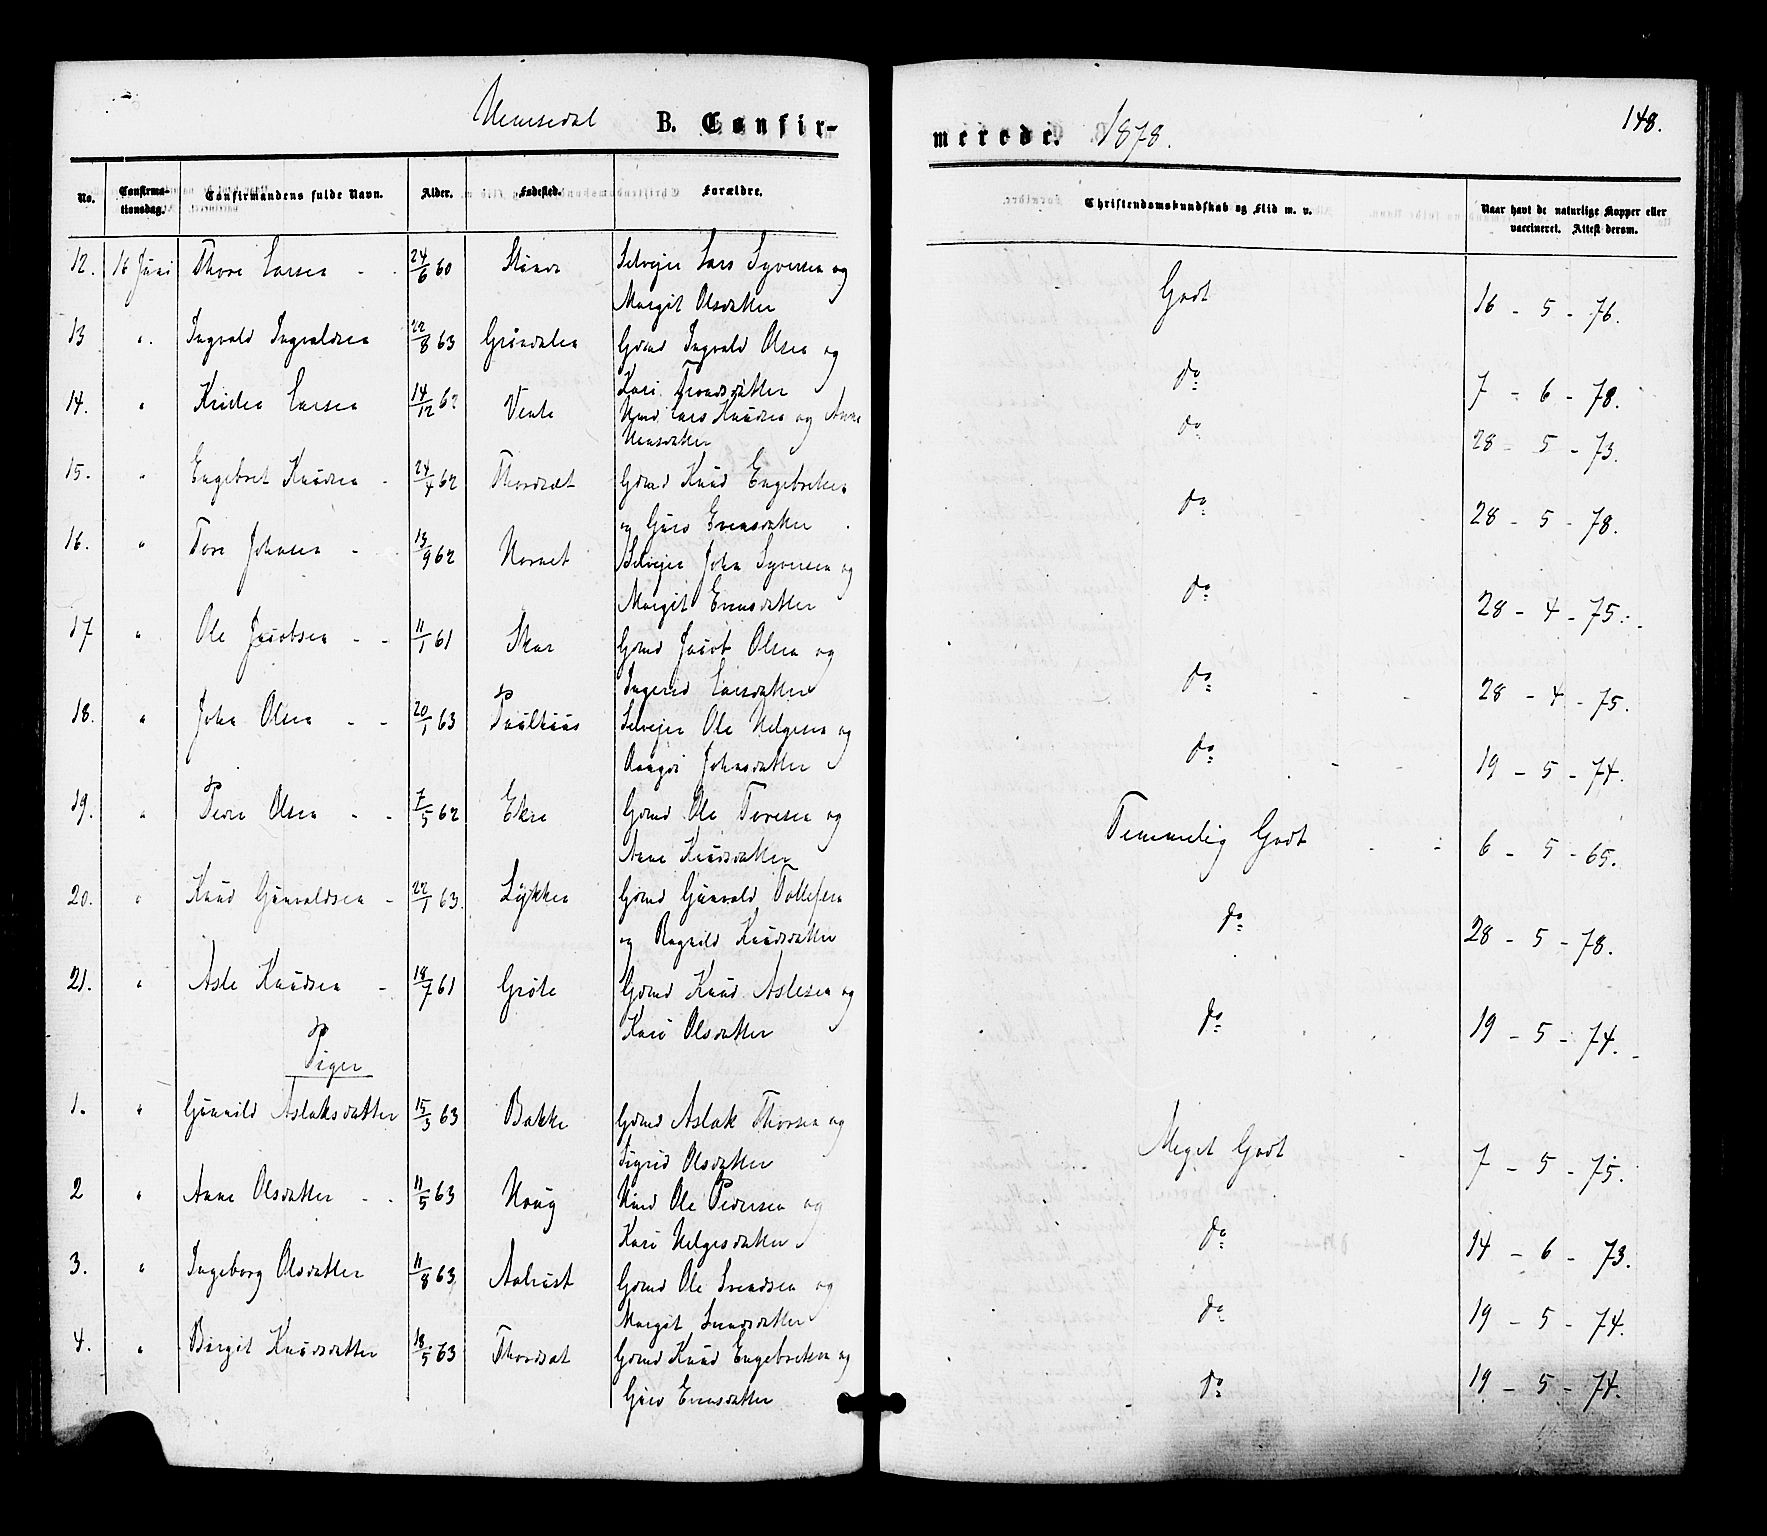 Hemsedal B. Confir-
merede. 1878. 148.
No. Confirma-tionsdag. Confirmandens fulde Navn. Alder. Fødested. Forældre. Christendomskundskab og Flid m. v. Naar havt de naturlige Kopper eller vaccineret. Attest derom.
12. 16 Juni Thore Larsen - - 24/6 60 Selvejer Lars Syversen og
Margit Olsdatter Godt 16 - 5 - 76.
13 " Ingvald Ingvaldsen 22/8 63 Grøndalen Gbmd Ingvald Olsen og
Kari Trondsdatter do 7 - 6 - 78.
14. " Larsen 14/12 62 Lars Knudsen og Anne
do 28 - 5 - 73.
15. " Engebret Knudsen - 24/4 62 Thordsæt Gbmd Knud Engebretsen
og Guro Evensdatter do 28 - 5 - 78.
16. " Tore Johnsen - 13/9 62 Selvejer John Syversen og
Margit Evensdatter do 28 - 4 - 75.
17 " Ole Jacobsen - - 11/1 61 Skar Gbmd Jacob Olsen og
Ingerid Larsdatter do 28 - 4 - 75.
18. " John Olsen - - 20/1 63 Paulhuus Selvejer Ole Helgesen og
Johnsdatter do 19 - 5 - 74.
19. " Peder Olsen - - 7/5 62 Ekre Gbmd Ole Toresen og
Anne Knudsdatter Temmelig Godt 6 - 5 - 65.
20. " Knud Gunvaldsen - 22/1 63. Løkken Gbmd Gunvald Tollefsen
og Ragnild Knudsdatter do 28 - 5 - 78.
21. " Asle Knudsen - 18/7 61 Grøte Gbmd Knud Aslesen og
Kari Olsdatter do 19 - 5 - 74.
Piger
1. " Gunnild Aslaksdatter 15/3 63 Bakke Gbmd Aslak Thorsen og
Sigrid Olsdatter Meget Godt 7 - 5 - 75.
2 " Anne Olsdatter - - 11/5 63 Haug Hmd Ole Pedersen og
Kari Helgesdatter do 14 - 6 - 73.
3. " Ingeborg Olsdatter 11/8 63 Aalrust Gbmd Ole Svendsen og
Margit do 19 - 5 - 74.
4. " Birgit Knudsdatter 18/5 63 Thordsæt Gbmd Knud Engebretsen og
Guro Evensdatter do 19 - 5 - 74.